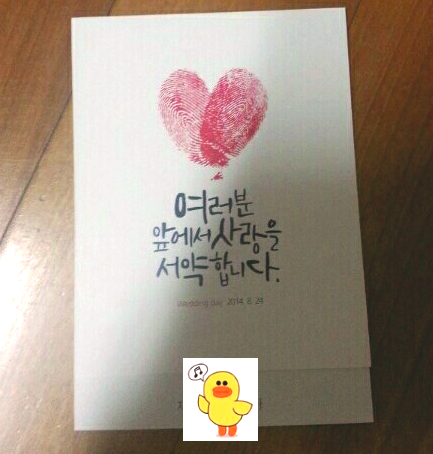 여러분
앞에서 사랑을
서약합니다.
Wedding day 2014. 8. 24